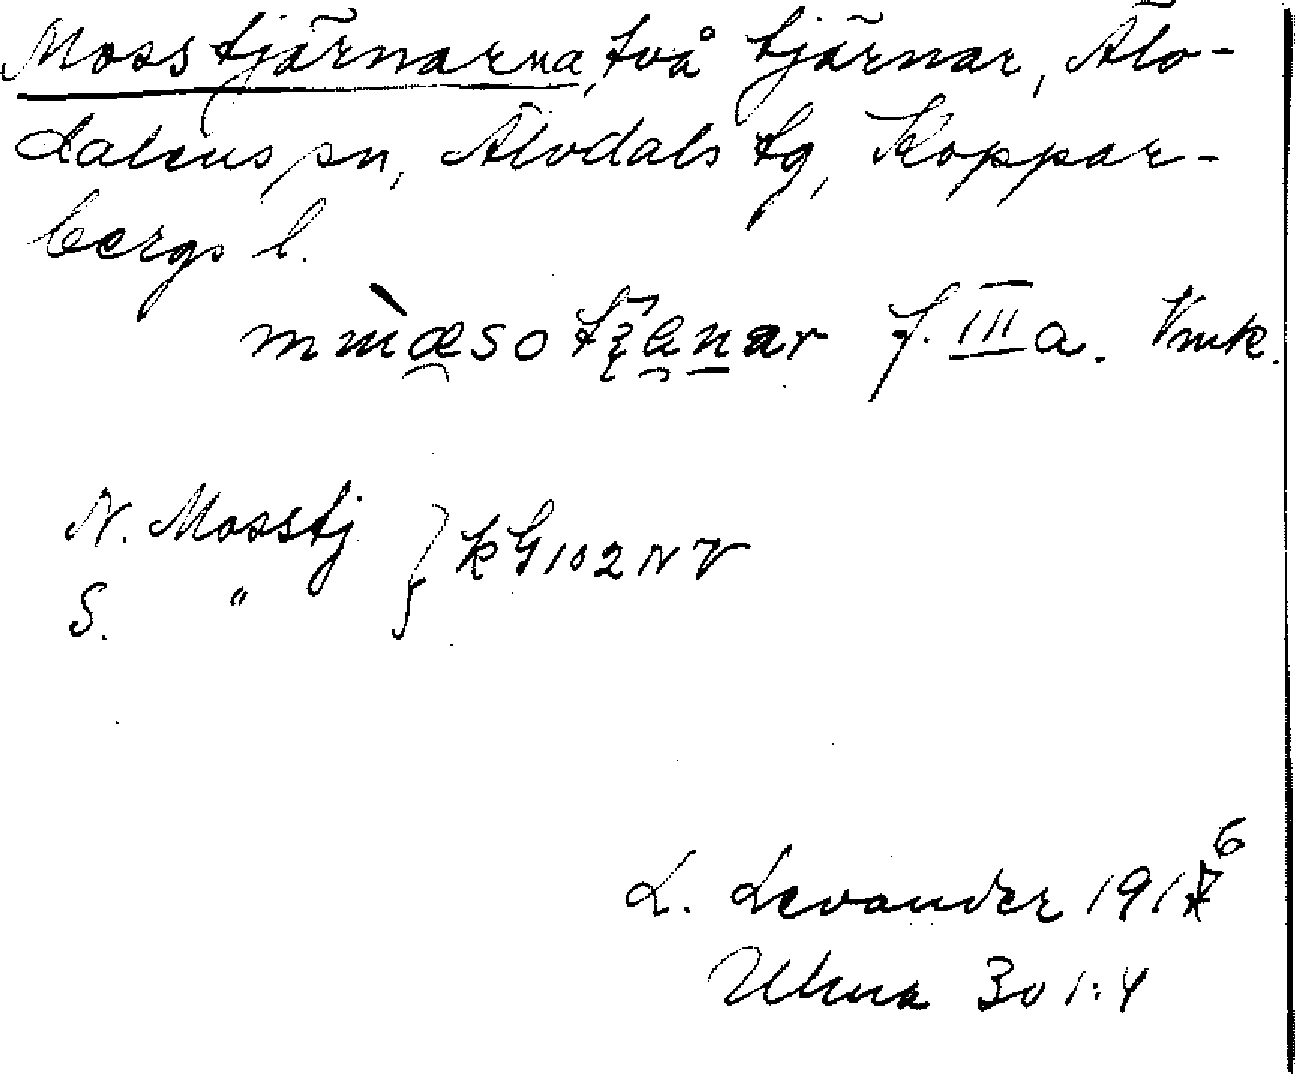 Mosstjärnarna, två tjärnar, Älv-
dalens sn, Älvdals tg, Koppar-
bergs l.
f. III a.
N. Mosstj
S. " } kG 102 NV
L. Levander 1916
Ulma 301:4